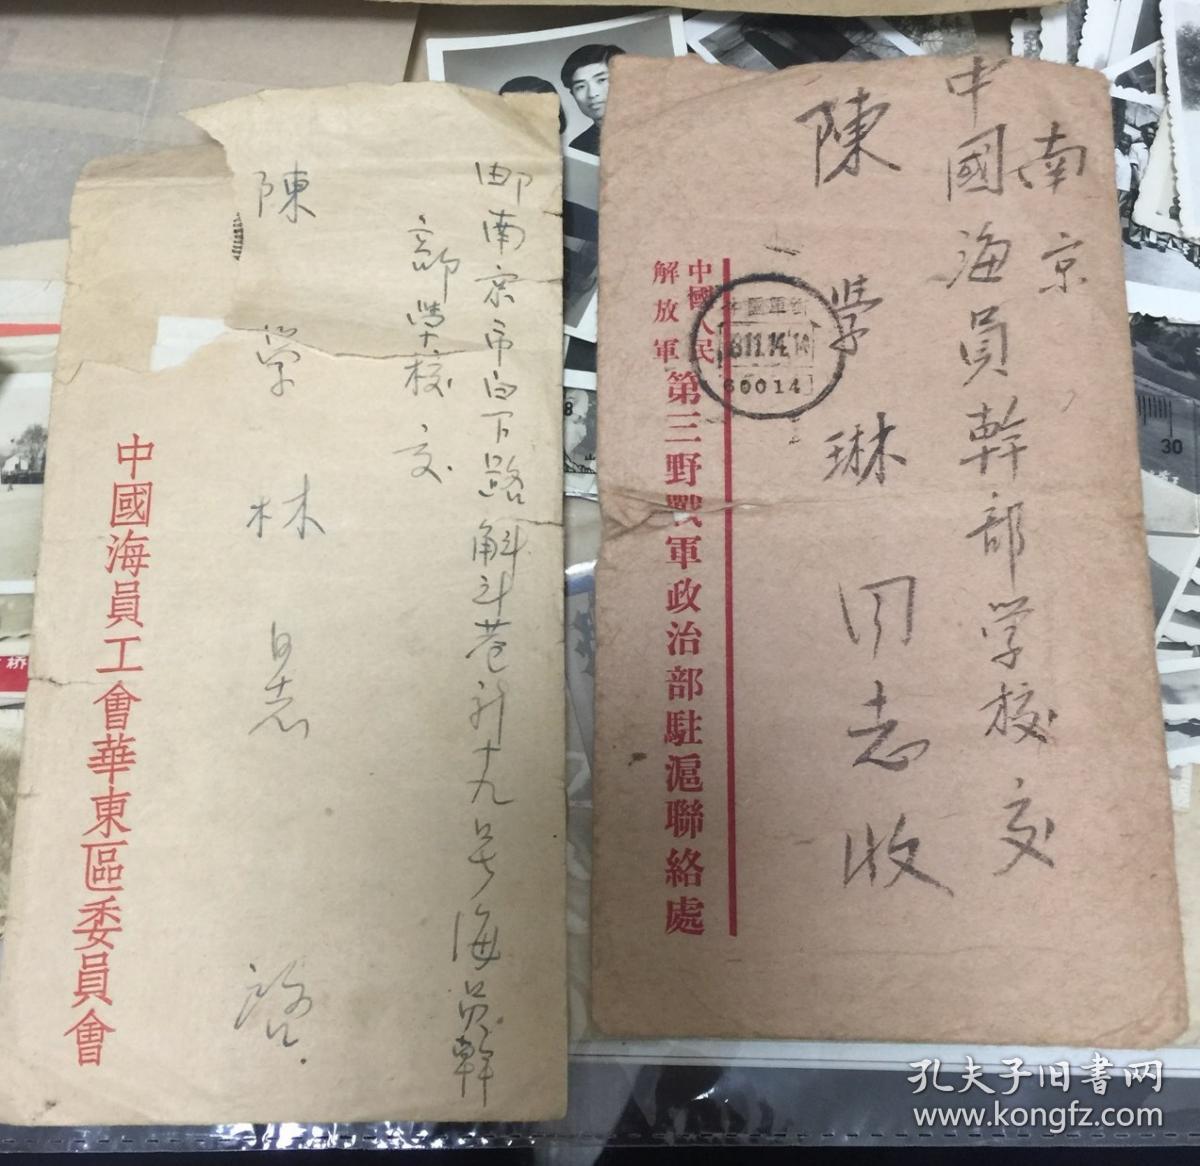 邮南京市白下路斛斗巷新十九号海员幹
部学校交
陳学林同志
啓
中國海員工會華東區委員會
南京
中國海員幹部学校交
陳学琳同志收
中國人民
解放軍
第三野戰軍政治部駐滬聯絡處
60014
桥
30
孔夫子旧书网
www.kongfz.com